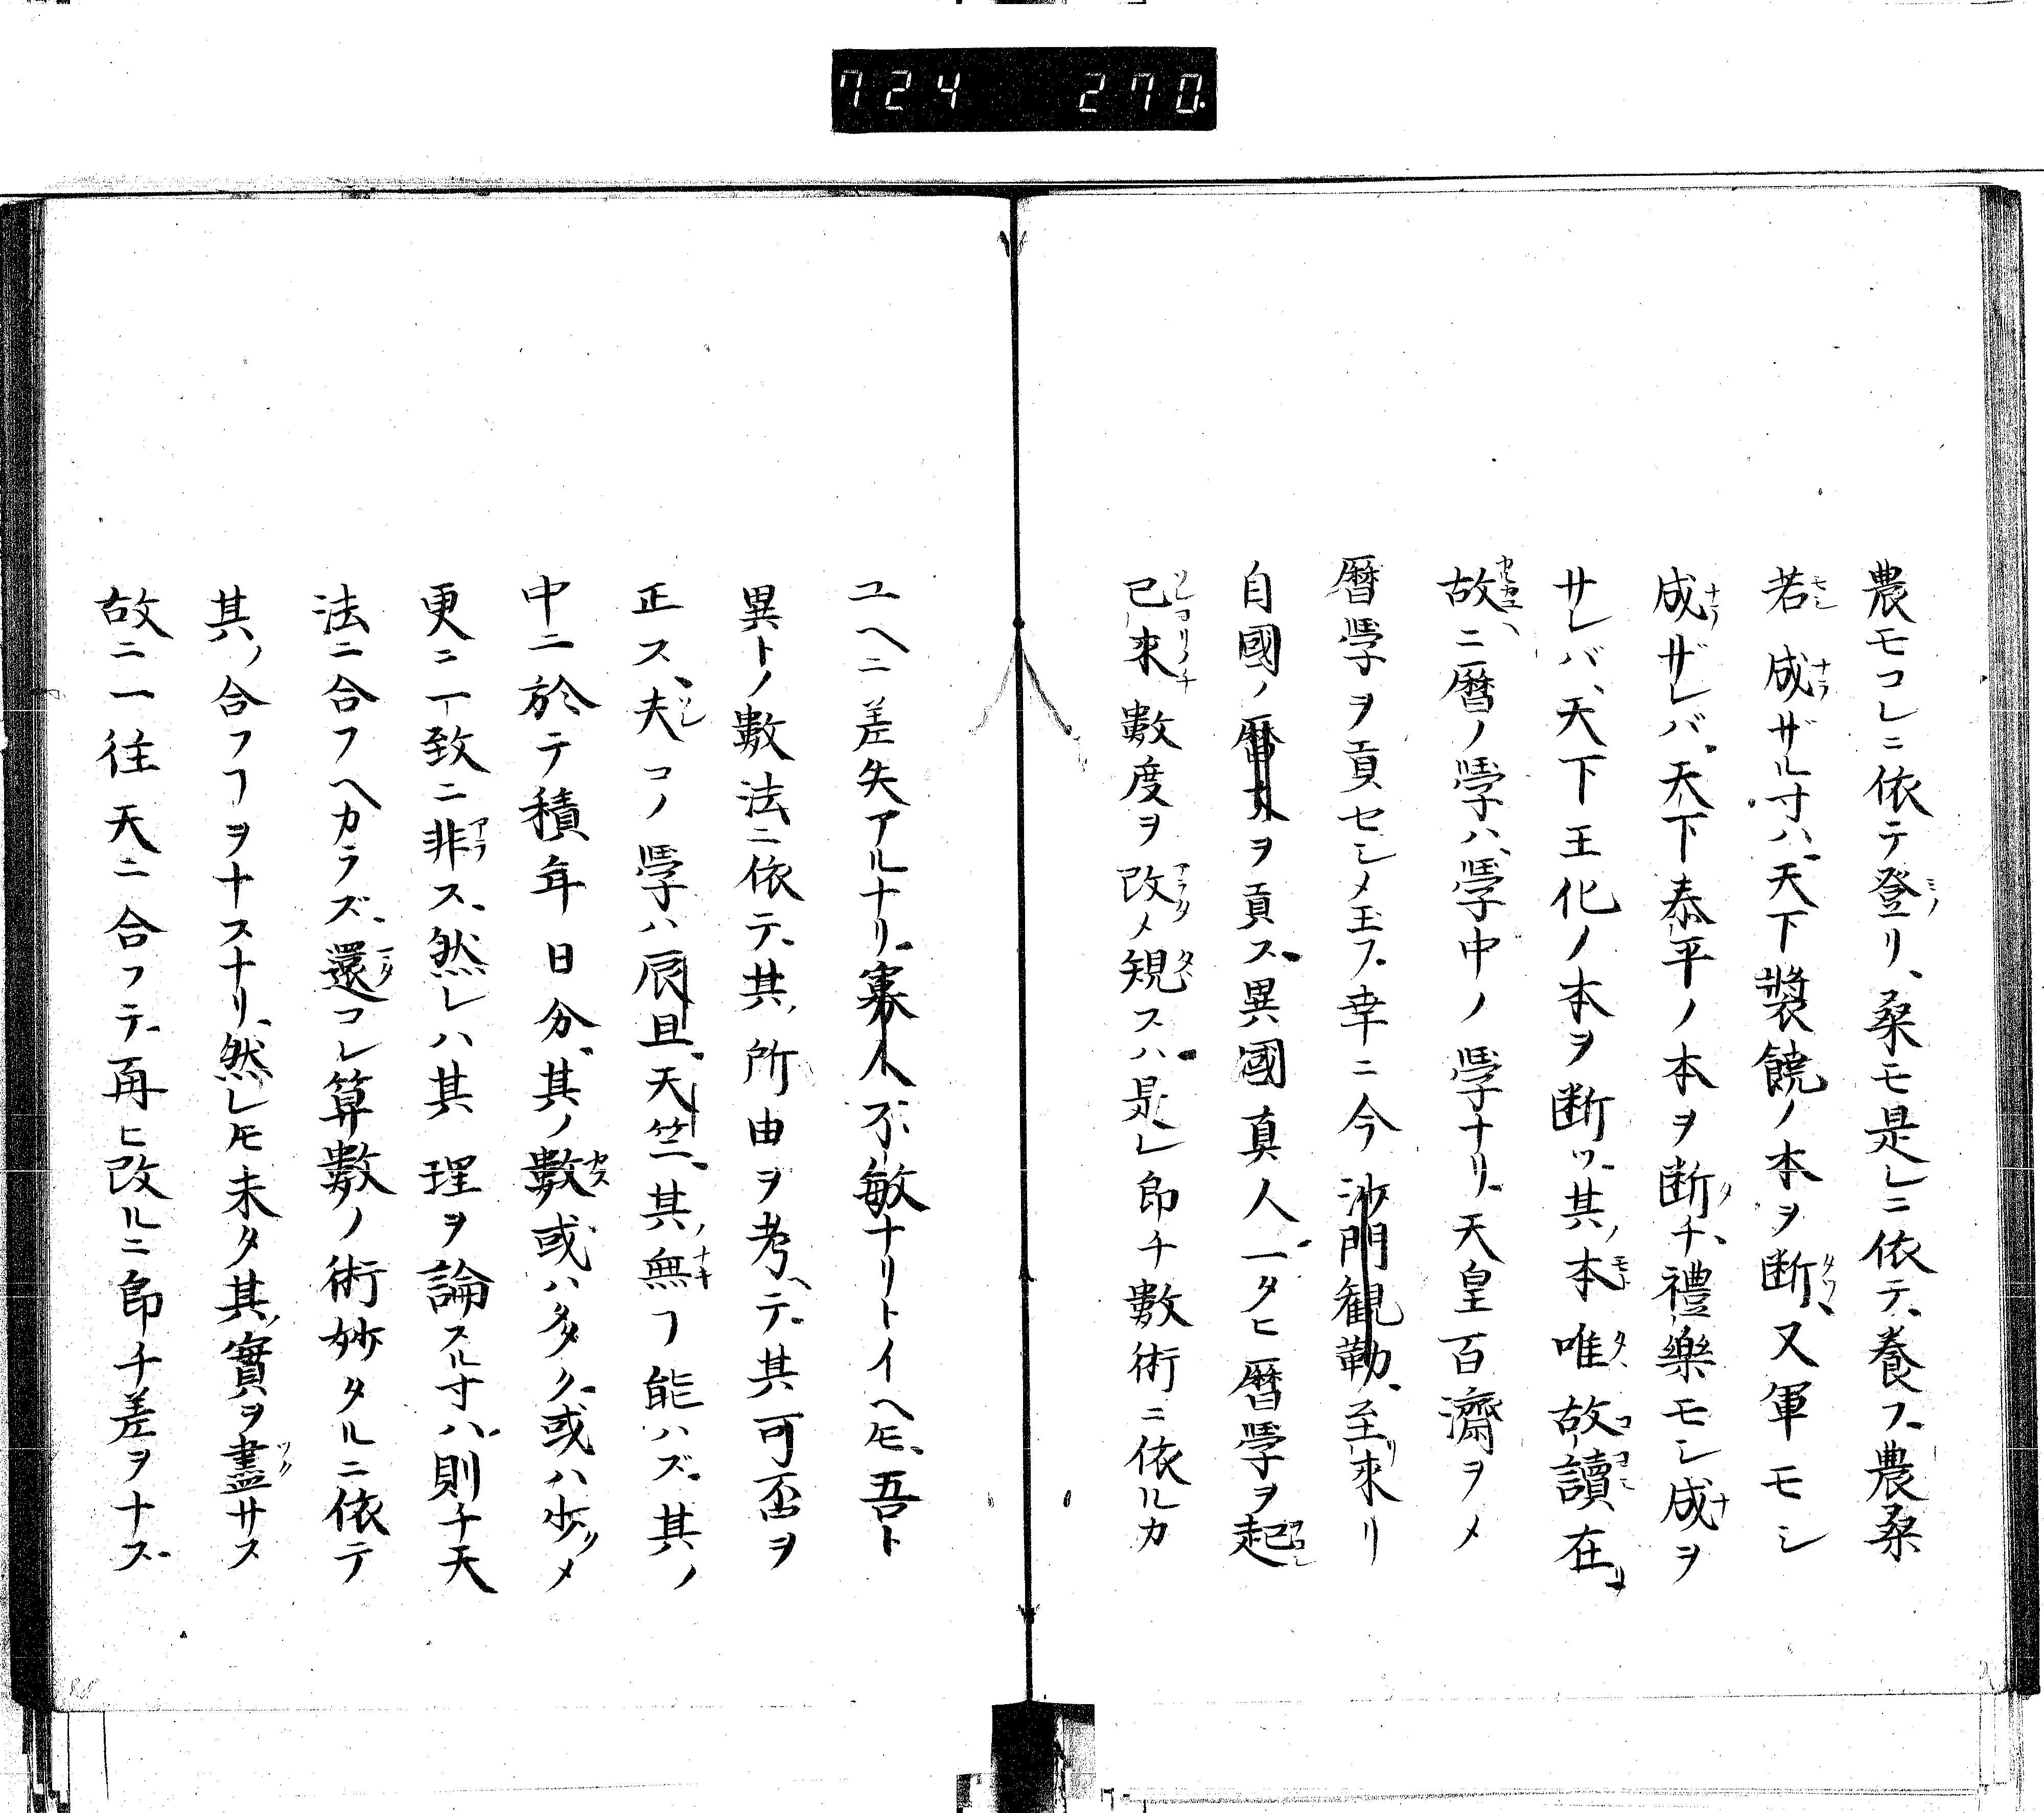 724 270.
農モコレニ依テ登リ、桑モ是レニ依テ、養フ、農桑
若成ザル寸ハ、天下裝饒ノ本ヲ断、又軍モシ
成ザレバ、天下泰平ノ本ヲ断チ、禮樂モシ成ヲ
サレバ、天下王化ノ本ヲ断ツ、其ノ本唯故讀在リ
故ニ暦ノ學ハ、學中ノ學ナリ、天皇百濟ヲメ
暦學ヲ貢セシメ玉フ、幸ニ今沙門観勒、至來リ
自國ノ暦本ヲ貢ス、異國真人、一タヒ暦學ヲ起
已來數度ヲ改メ規スハ、是レ卽チ數術ニ依ルカ
ユヘニ差失アルナリ、寡人不敏ナリトイヘ𪜈、吾ト
異トノ數法ニ依テ、其ノ所由ヲ考ヘテ、其可否ヲ
正ス、夫コノ學ハ辰旦、天竺、其ノ無フ能ハズ、其ノ
中ニ於テ積年日分、其ノ數或ハ多ク、或ハ少メ
更ニ一致ニ非ス、然レハ其理ヲ論スル寸ハ、則チ天
法ニ合フヘカラズ、還コレ算數ノ術妙タルニ依テ
其ノ合フヿヲナスナリ、然レ𪜈未タ其ノ實ヲ盡サス
故ニ一往天ニ合フテ、再ヒ改ルニ卽チ差ヲナス、